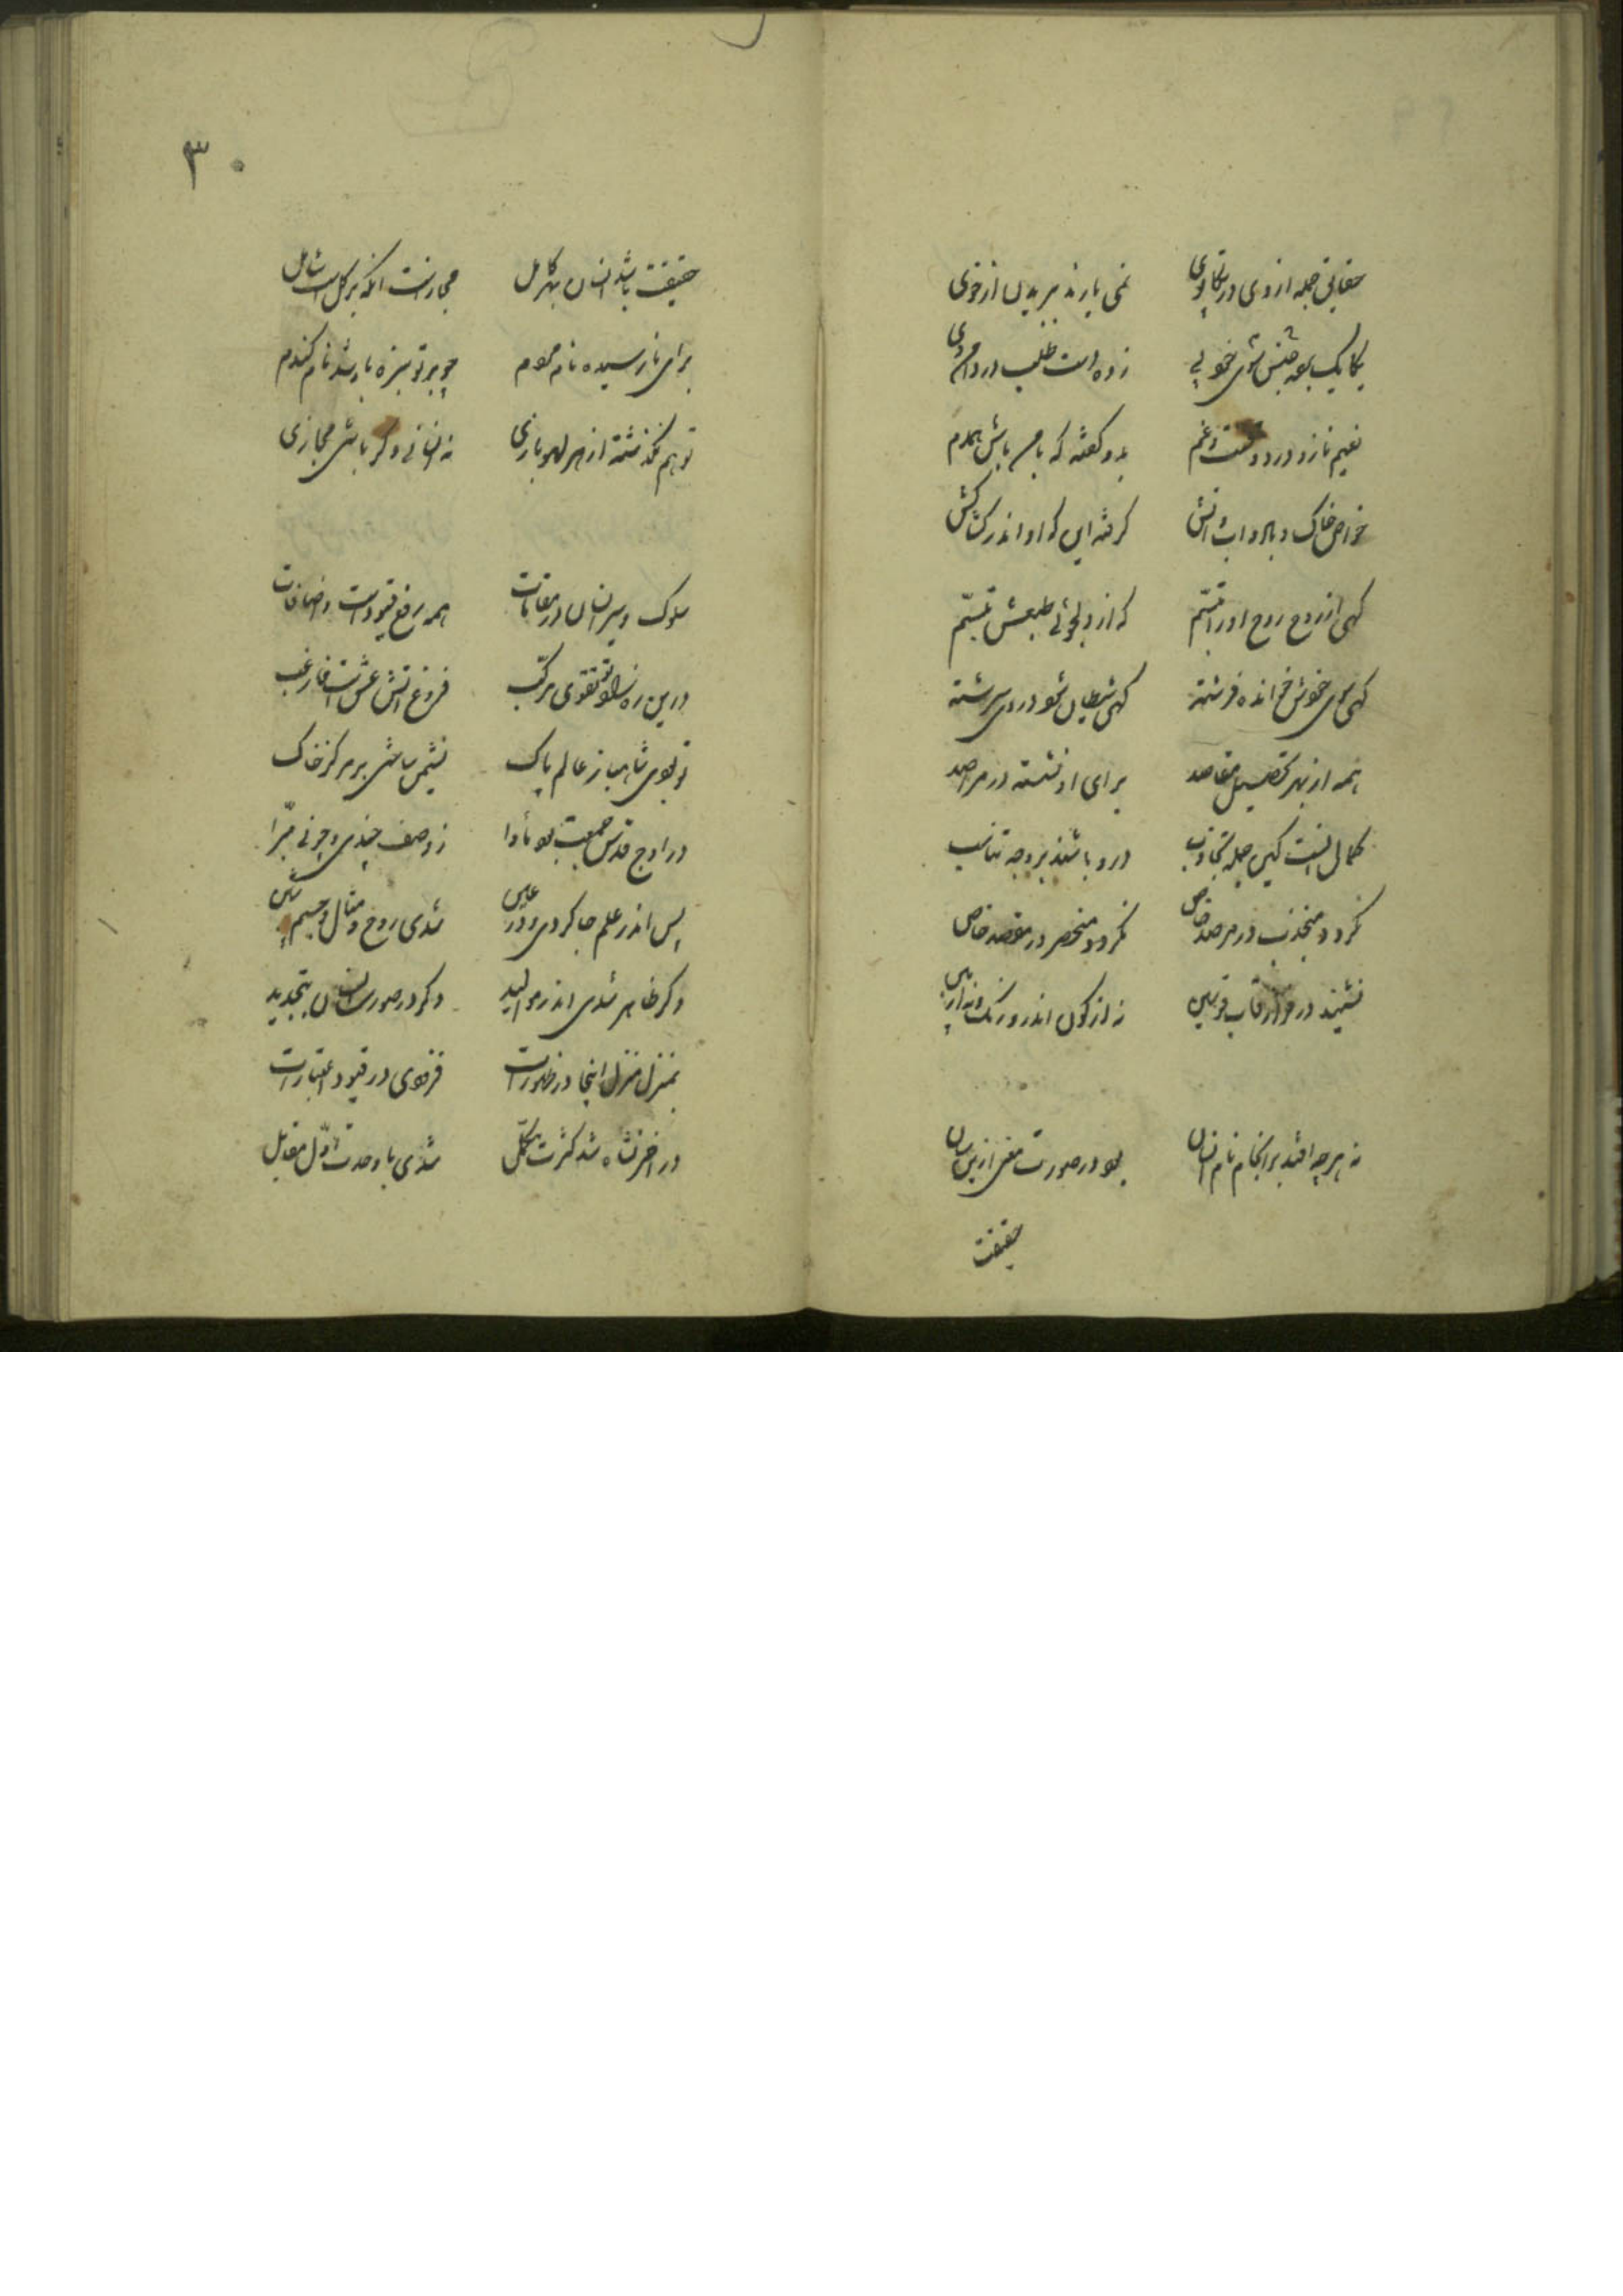 حقایق جمله از وی در تکاپوی نمی یارند ببریدن از خوی
یکایک بوده جنبش سوی خوبی زده دست طلب در دامن وی
نعیم ناز و درد و محنت و غم بدو گفته که با من باش همدم
خواص خاک و باد و آب و آتش گرفته این که او اندر کشاکش
گهی از روح روح او را تنسم که از دلجوئی طبعش تبسم
گهی سوی خودش خوانده فرشته گهی شیطان شود در وی سرشته
همه از بهر تحصیل مقاصد برای او نشسته در مراصد
کمال اینست کین جمله تجاذب درو باشند بر وجه تناسب
نگردد منجذب در مرصد خاص نگردد منحصر در مقصد خاص
نشیند در قاب قوسین نه از کون اندرو رنگ و نه از
نه هر چه افتد برانجام نام انسان بود در صورت معنی ازین سان
حقیقت
۳۰
حقیقت باشد انسان بهر کامل مجازست آنکه بر کل است شامل
برای نارسیده نام مردم چو بر تو سبزه باشد نام گندم
تو هم نگذشته از هر لهو بازی نه انسانی وگر باشی مجازی
سلوک و سیر انسان در مقامات همه رفع قیودست و اضافات
درین ره زاد تو تقوی مرکب فروغ آتش عشق است
تو بودی شاهباز عالم پاک نشیمن ساختی بر مرکز خاک
در اوج قدس جمعیت بود مأوا ز وصف چندی و چونی مبرا
پس اندر علم جا کردی و در عین شدی روح و مثال و جسم
دگر ظاهر شدی اندر موالید دگر در صورت انسان بتجدید
بمنزل منزل اینجا در ظهورات فزودی در قیود اعتبارات
در آخر نشاه شد کثرت مکمل شدی با وحدت اول مقابل